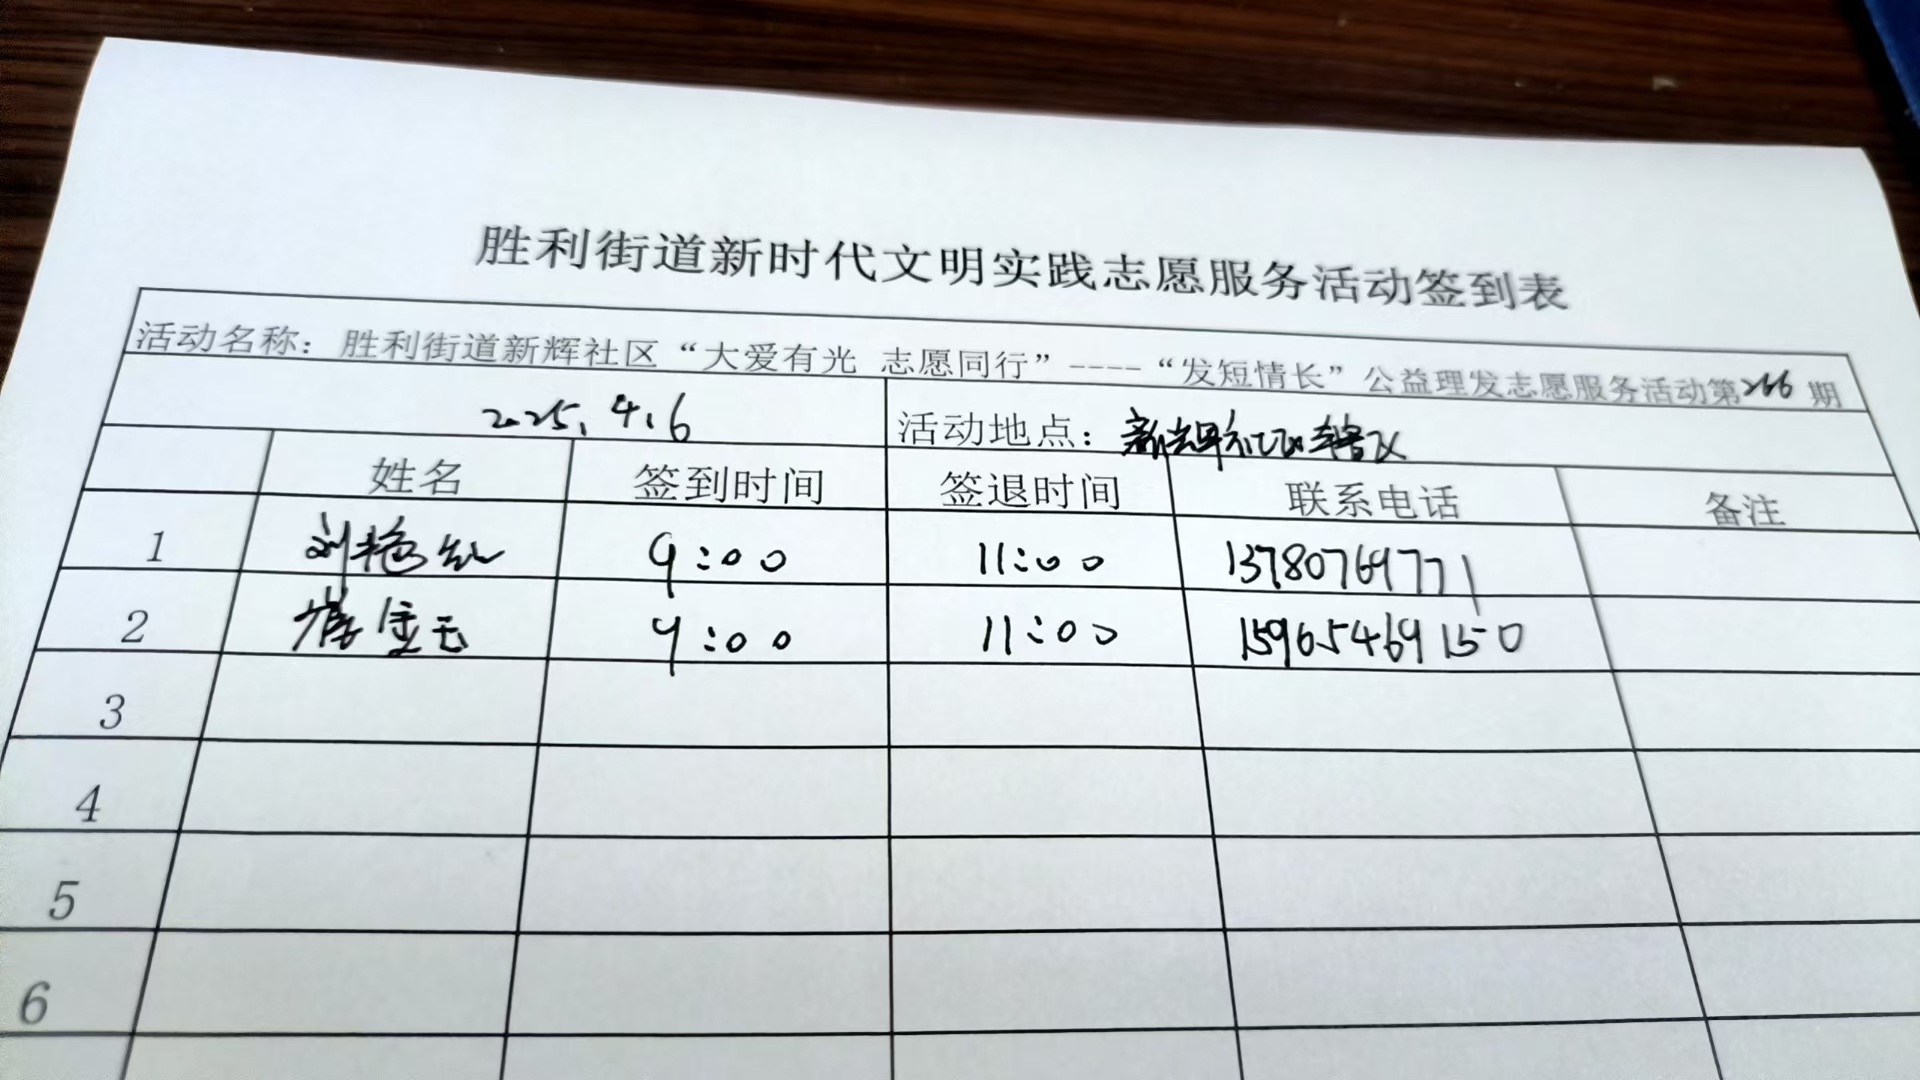 胜利街道新时代文明实践志愿服务活动签到表
活动名称：胜利街道新辉社区“大爱有光 志愿同行”----“发短情长”公益理发志愿服务活动第266期
2025.4.6 活动地点：新辉社区辖区
姓名 签到时间 签退时间 联系电话 备注
1 刘艳红 9:00 11:00 13780769771
2 9:00 11:00 15965469150
3
4
5
6